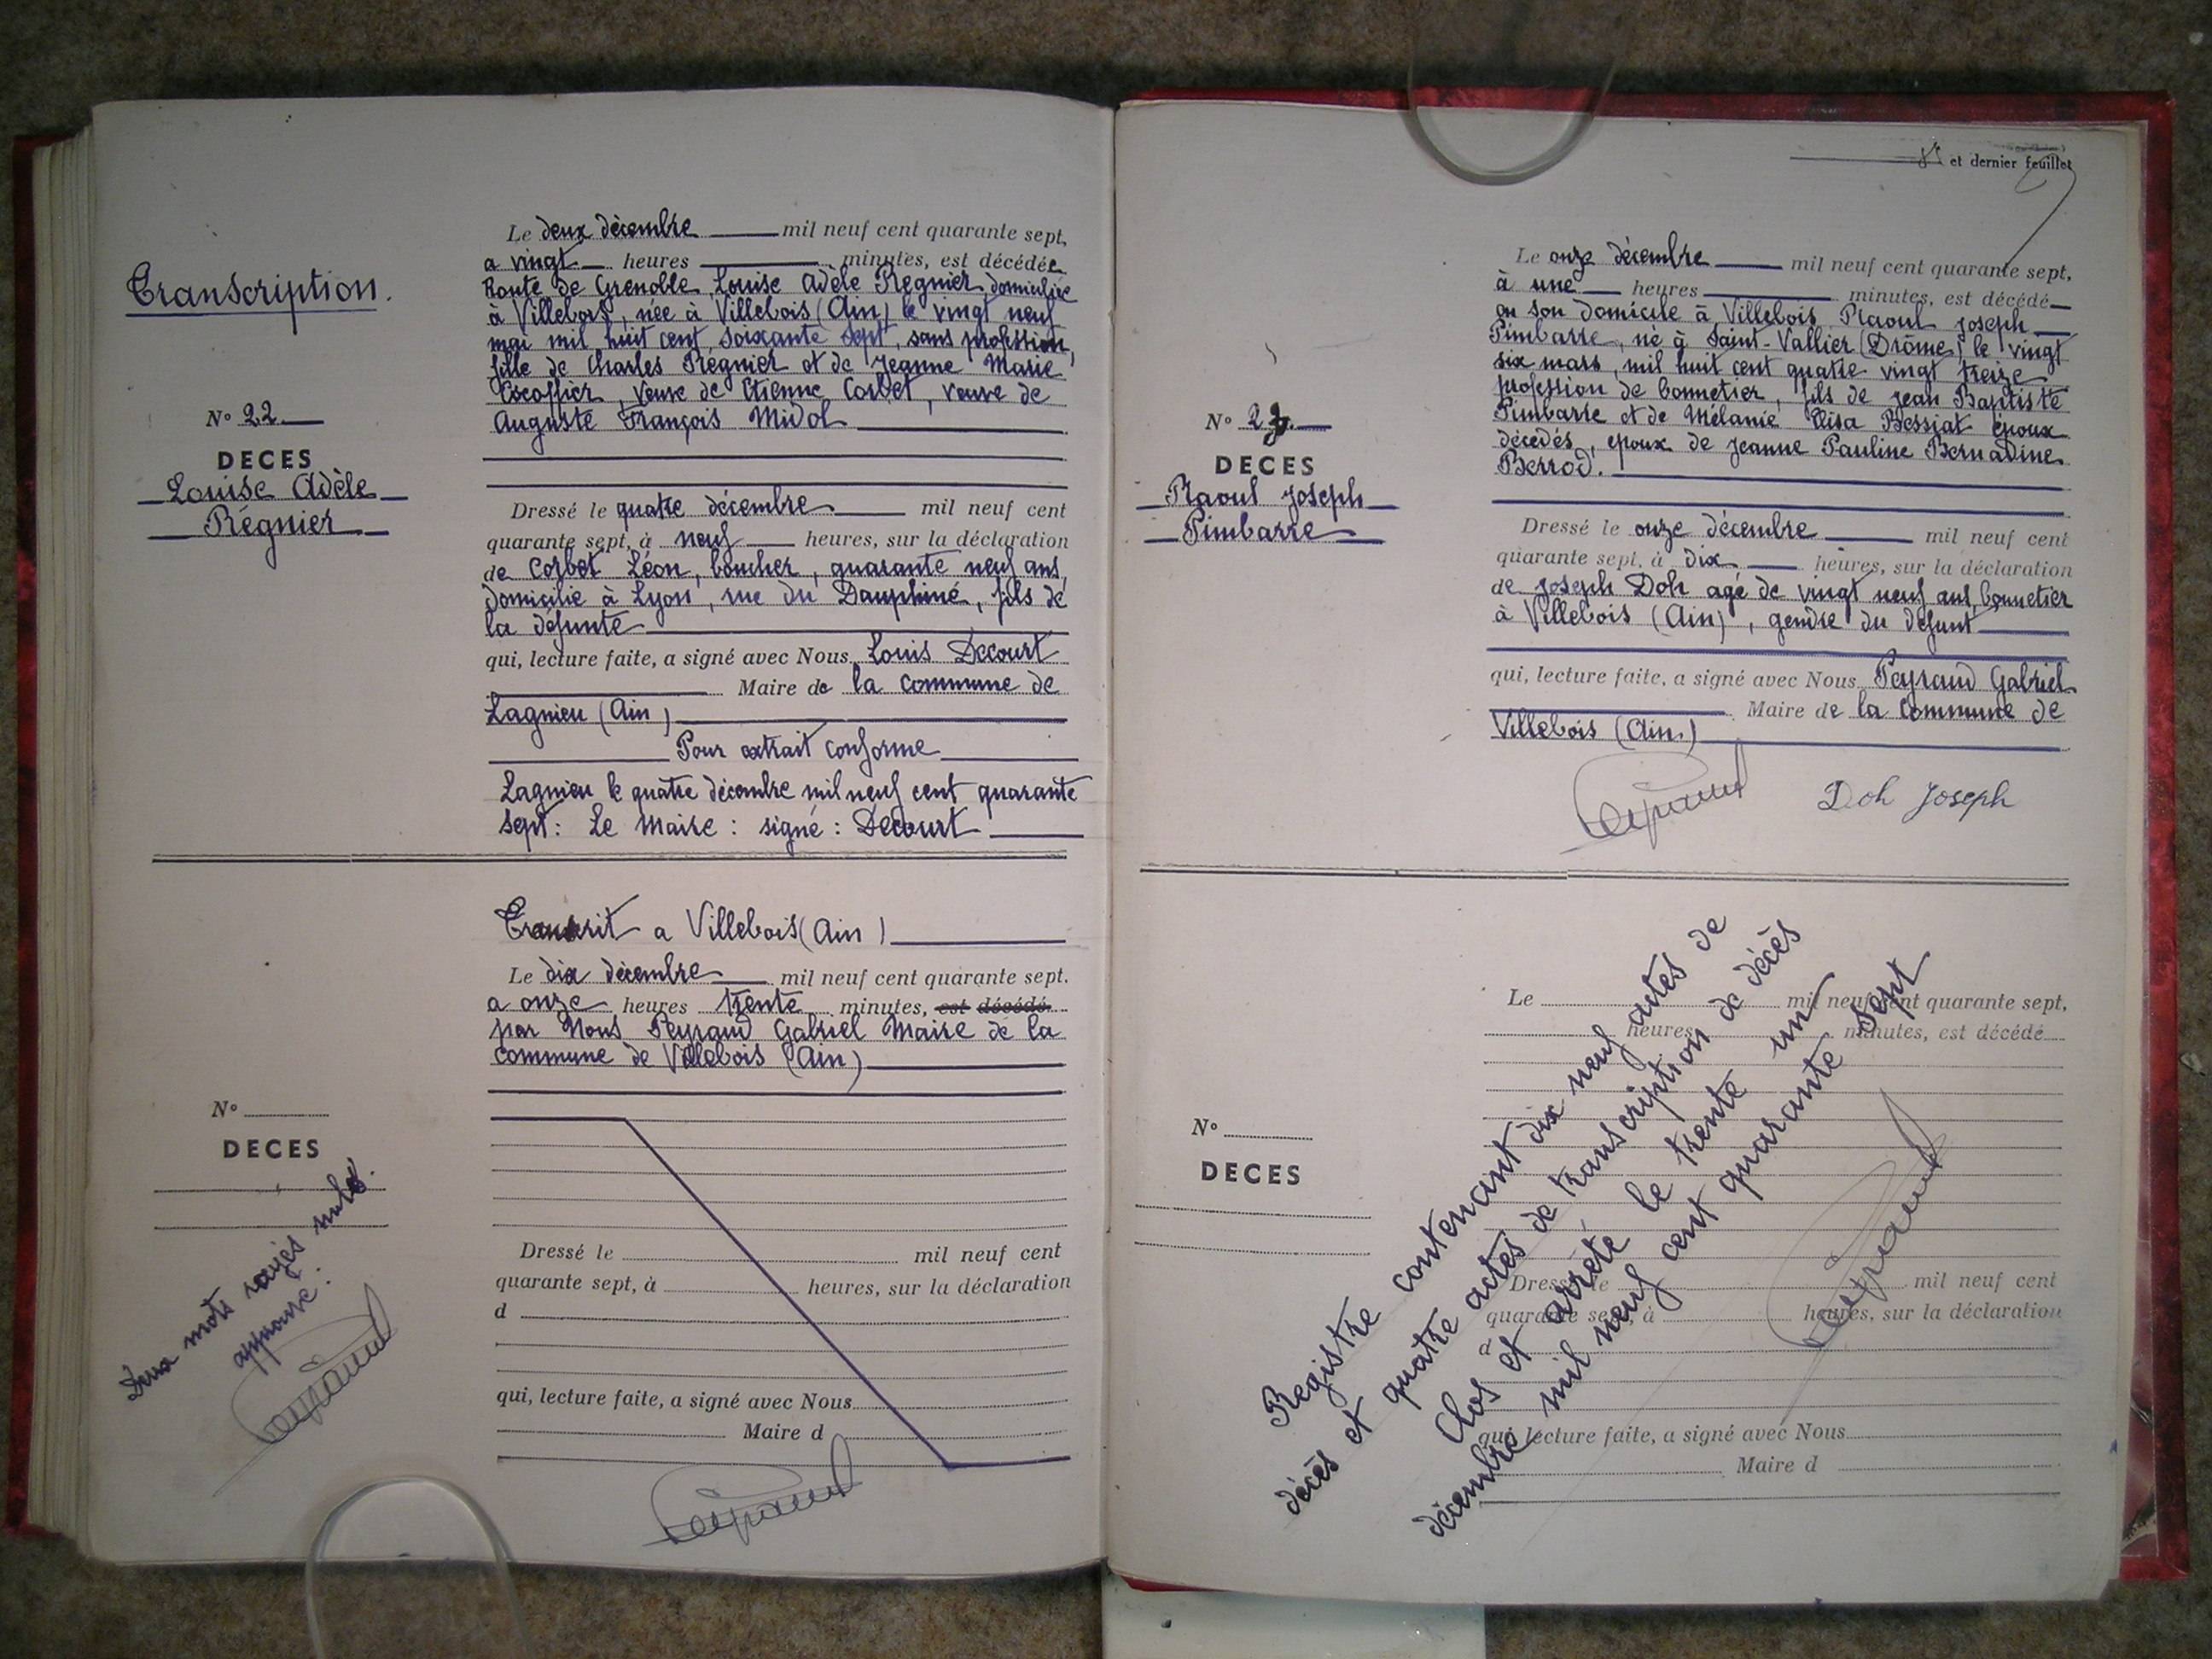 Transcription.
N° 22
DECES
Louise Adèle
Régnier
Le deux décembre mil neuf cent quarante sept,
a vingt heures minutes, est décédée
Route de Grenoble Louise Adèle Régnier domiciliée
à Villebois, née à Villebois (Ain) le vingt neuf
mai mil huit cent soixante sept, sans profession,
fille de Charles Régnier et de Jeanne Marie
Cocoffier, veuve de Etienne Corbet, veuve de
Auguste François Midol
Dressé le quatre décembre mil neuf cent
quarante sept, à neuf heures, sur la déclaration
de Corbet Léon, boucher, quarante neuf ans,
domicilié à Lyon, rue du Dauphiné, fils de
la défunte
qui, lecture faite, a signé avec Nous Louis Decourt
Maire de la commune de
Lagnieu (Ain)
Pour extrait conforme
Lagnieu le quatre décembre mil neuf cent quarante
sept : Le Maire : signé : Decourt
Transcrit a Villebois (Ain)
Le dix décembre mil neuf cent quarante sept.
a onze heures trente minutes, est décédé
par Nous Peyraud Gabriel Maire de la
commune de Villebois (Ain)
N°
DECES
Deux mots rayés nuls.
approuvé.
Peyraud
Dressé le mil neuf cent
quarante sept, à heures, sur la déclaration
d
qui, lecture faite, a signé avec Nous
Maire d
Peyraud
et dernier feuillet
N° 23
DECES
Raoul Joseph
Pimbarre
Le onze décembre mil neuf cent quarante sept,
à une heures minutes, est décédé
en son domicile à Villebois Raoul Joseph
Pimbarre, né à Saint-Vallier (Drôme) le vingt
six mars, mil huit cent quatre vingt treize
profession de bonnetier, fils de Jean Baptiste
Pimbarre et de Mélanie Elisa Bessiat époux
décédés, époux de Jeanne Pauline Bernadine
Berrod.
Dressé le onze décembre mil neuf cent
quarante sept, à dix heures, sur la déclaration
de Joseph Doh agé de vingt neuf ans, bonnetier
à Villebois (Ain), gendre du défunt
qui, lecture faite, a signé avec Nous Peyraud Gabriel
Maire de la Commune de
Villebois (Ain)
Peyraud Doh Joseph
N°
DECES
Le mil neuf cent quarante sept,
heures minutes, est décédé
Dressé le mil neuf cent
quarante sept, à heures, sur la déclaration
d
qui, lecture faite, a signé avec Nous
Maire d
Registre contenant dix neuf actes de
décès et quatre actes de transcription de décès
Clos et arrêté le trente un
décembre mil neuf cent quarante sept
Peyraud